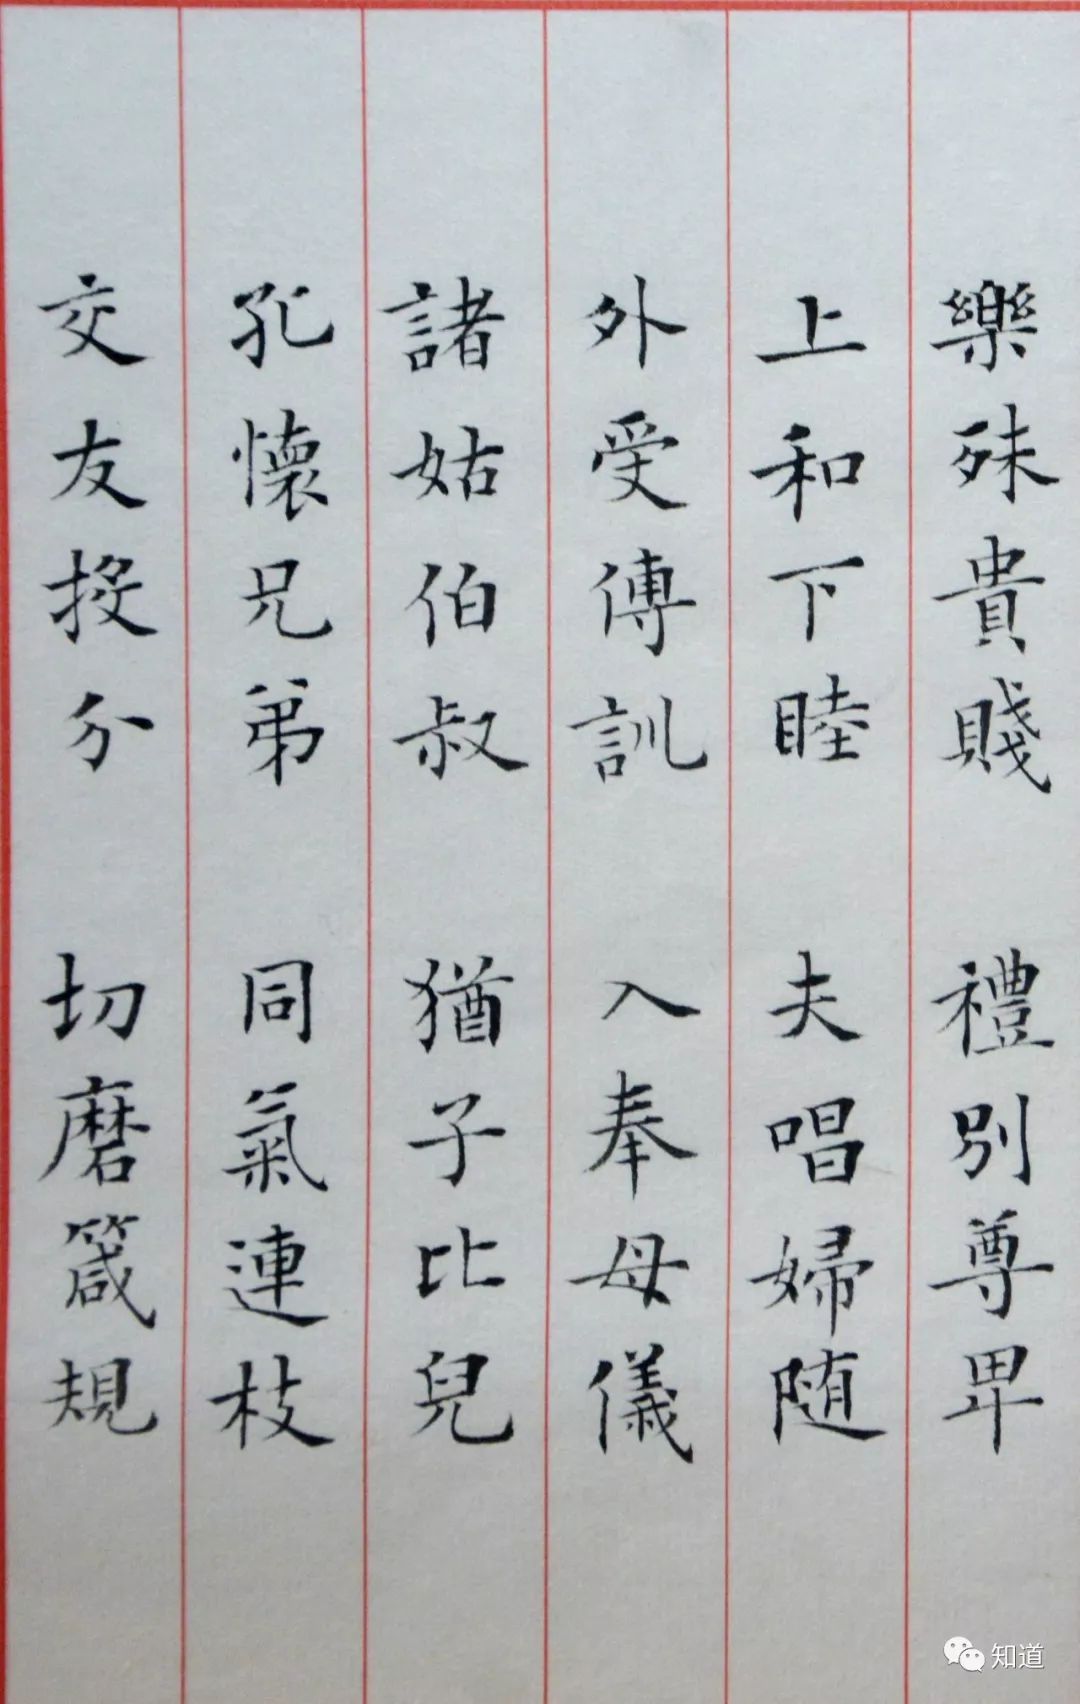 樂殊貴賤 禮別尊卑
上和下睦 夫唱婦随
外受傅訓 入奉母儀
諸姑伯叔 猶子比兒
孔懷兄弟 同氣連枝
交友投分 切磨箴規
知道